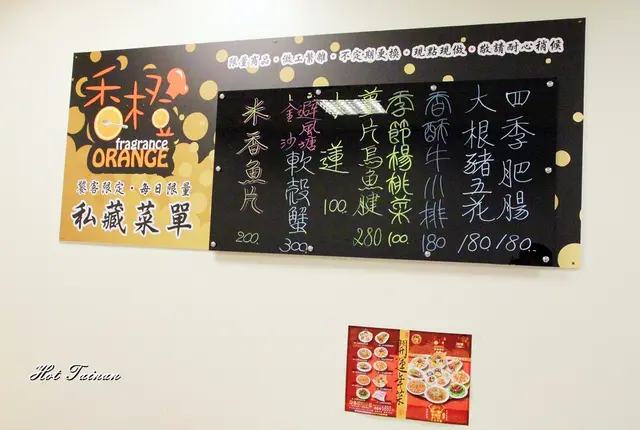 限量商品・做工繁雜・不定期更換・現點現做・敬請耐心稍候
香橙
fragrance
ORANGE
饕客限定・每日限量
私藏菜單
四季肥腸 180.
大根豬五花 180.
香酥牛小排 180
季節楊桃菜 100.
片烏魚腱 280
蓮 100.
避風塘
金沙
軟殼蟹 300.
米香魚片 200.
開運年菜
Hot Tainan